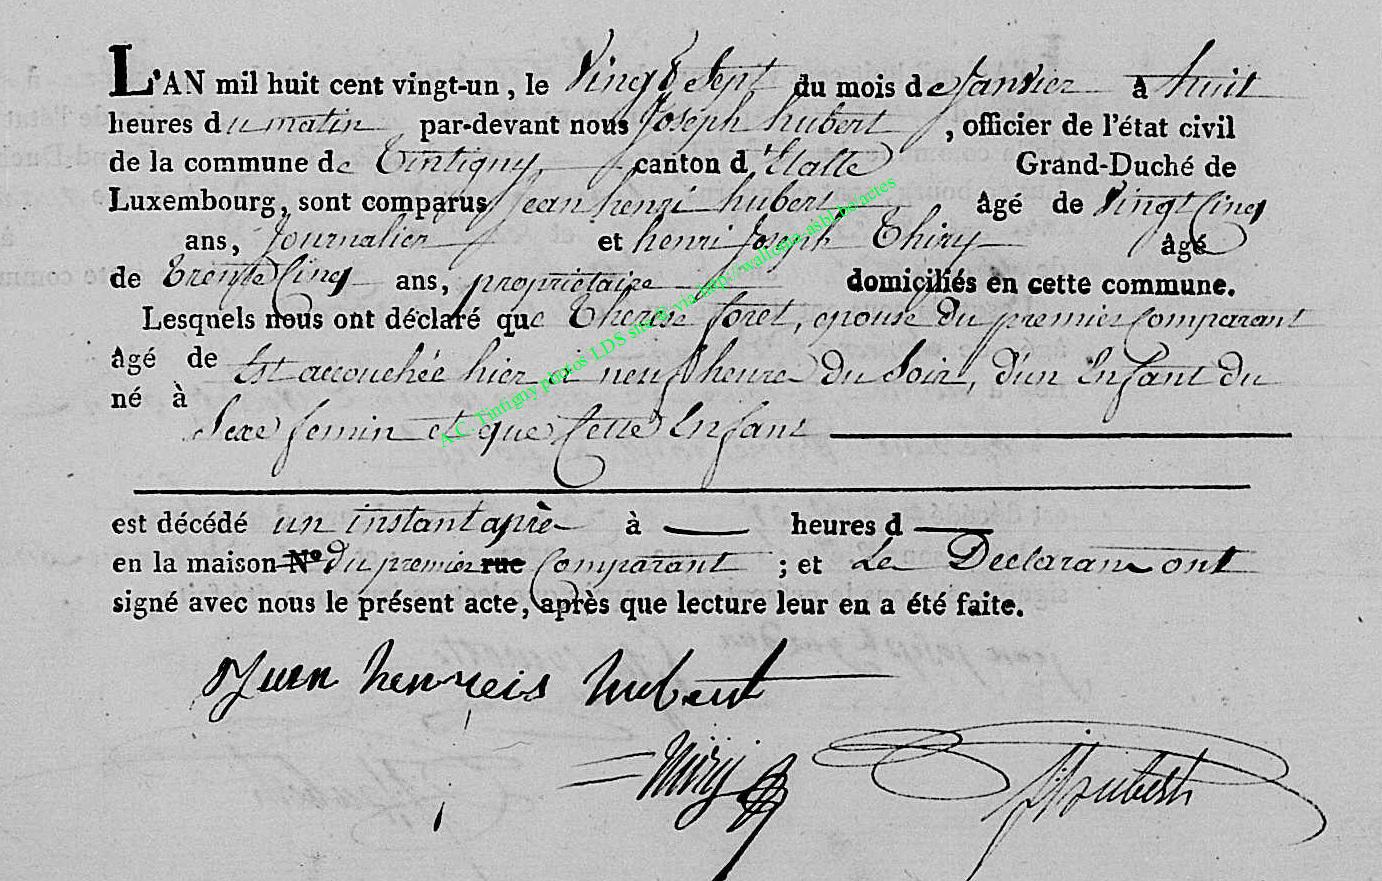 L'AN mil huit cent vingt-un, le Vingt Sept du mois de Janvier à huit
heures du matin par-devant nous Joseph hubert, officier de l'état civil
de la commune de Tintigny, canton d'Etalle Grand-Duché de
Luxembourg, sont comparus Jean henri hubert, âgé de Vingt Cinq
ans, Journalier et henri Joseph Thiry âgé
de trente Cinq ans, propriétaire domiciliés en cette commune.
Lesquels nous ont déclaré que Therese foret, epouse du premier Comparant
âgé de Est accouchée hier à neuf heure du Soir, d'un Enfant du
né à Sexe femin et que Cette Enfant
est décédé un instant après à heures d
en la maison N° du premier rue Comparant ; et Les Declarans ont
signé avec nous le présent acte, après que lecture leur en a été faite.
Jean henreis hubert
Thiry
J. Jhubert
A.C. Tintigny photos LDS site @ via http://wallonia-asbl.be/actes